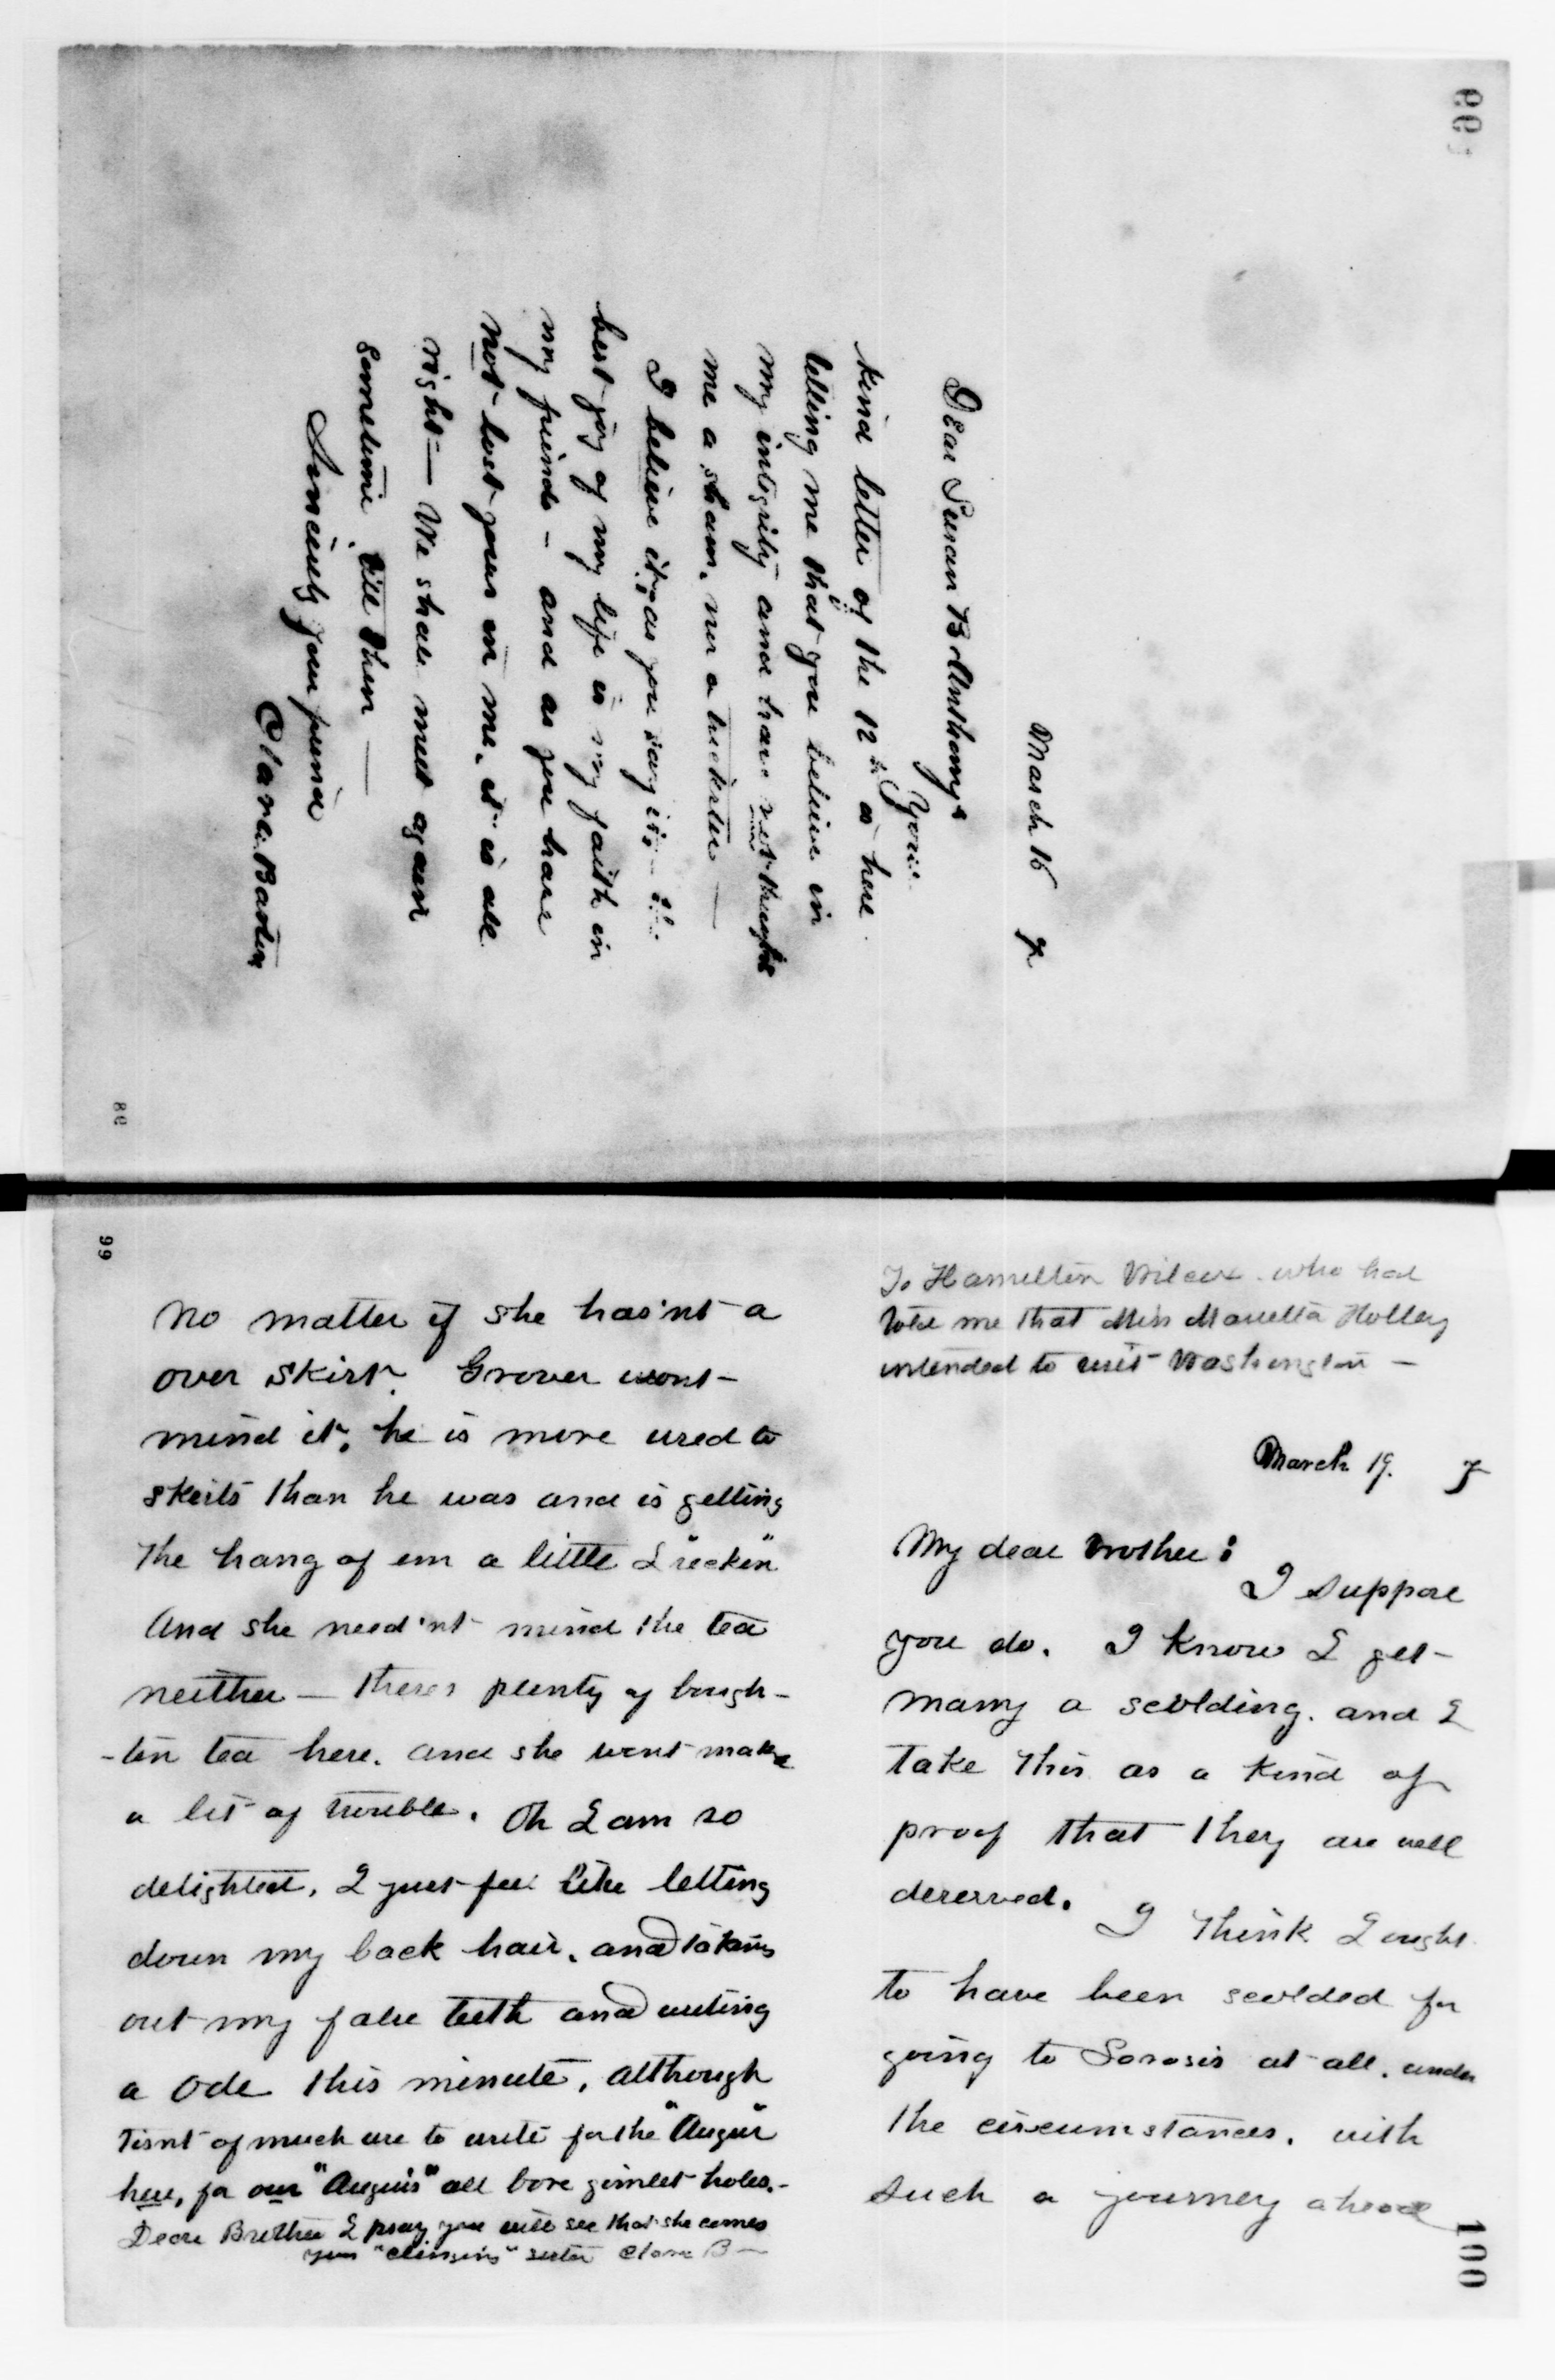 99
March 16 7
Dear Susan B. Anthony
Your
kind letter of the 12th is here
telling me that you believe in
my integrity and have not thought
me a sham, nor a huckster —
I believe it; as you say it, the
best joy of my life is my faith in
my friends — and as you have
not lost yours in me, it is all
right — We shall meet again
sometime, till then —
Sincerely your friend
Clara Barton
98
99
No matter if she has'nt a
over skirt. Grover wont
mind it, he is more used to
skirts than he was and is getting
the hang of em a little I "recken"
And she need'nt mind the tea
neither — theres plenty of bough-
-ten tea here. and she wont make
a bit of trouble. Oh I am so
delighted, I just feel like letting
down my back hair, and taking
out my false teeth and writing
a Ode this minute, although
Tisnt of much use to write for the "Augur"
here, for our "Augurs" all bore gimlet holes.-
Dear Brother I pray you will see that she comes
your "clinging" sister Clara B—
To Hamilton Wilcox who had
told me that Miss Marietta Holley
intended to visit Washington —
March 19. 7
My dear Brother:
I suppose
you do. I know I get
many a scolding. and I
take this as a kind of
proof that they are well
deserved. I think I ought
to have been scolded for
going to Sorosis at all, under
the circumstances, with
such a journey ahead
100